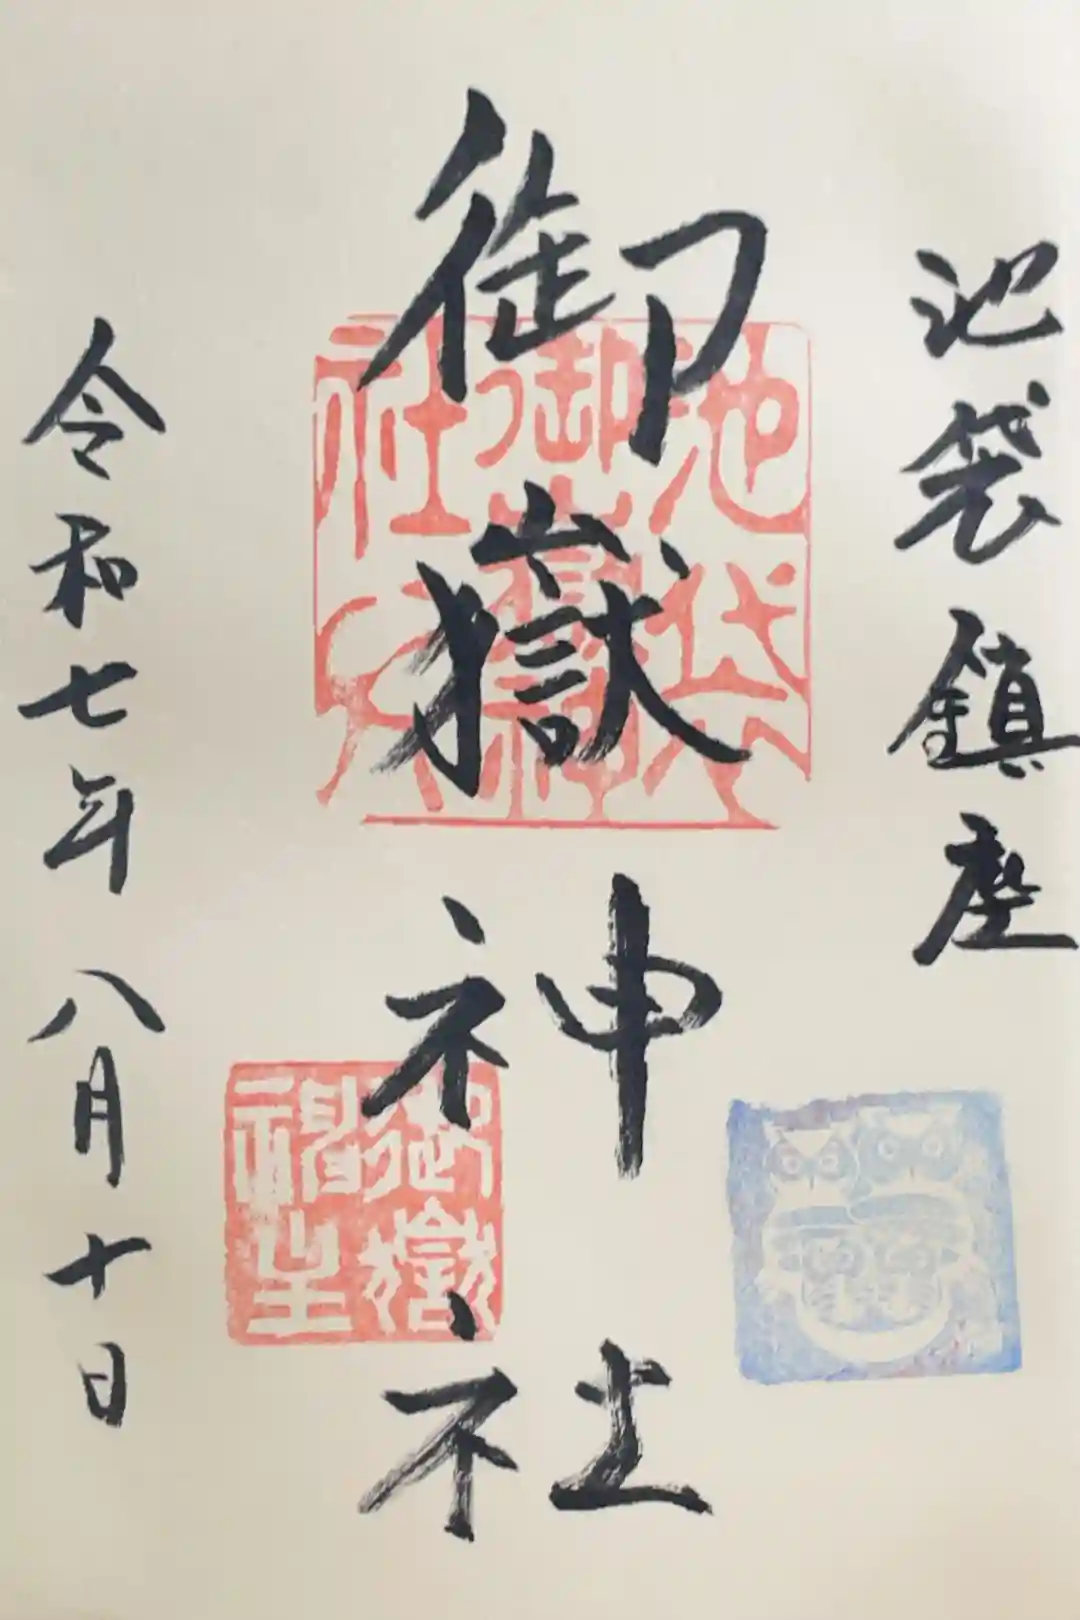 池袋鎮座
御嶽神社
令和七年八月十日
池袋
御嶽神
社之印
御嶽